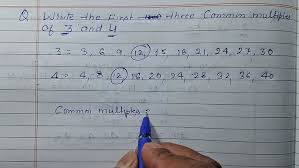 Q Write the first three Common multiples
of 3 and 4
3 = 3, 6, 9, 12, 15, 18, 21, 24, 27, 30
4 = 4, 8, 12, 16, 20, 24, 28, 32, 36, 40
Common multiples =